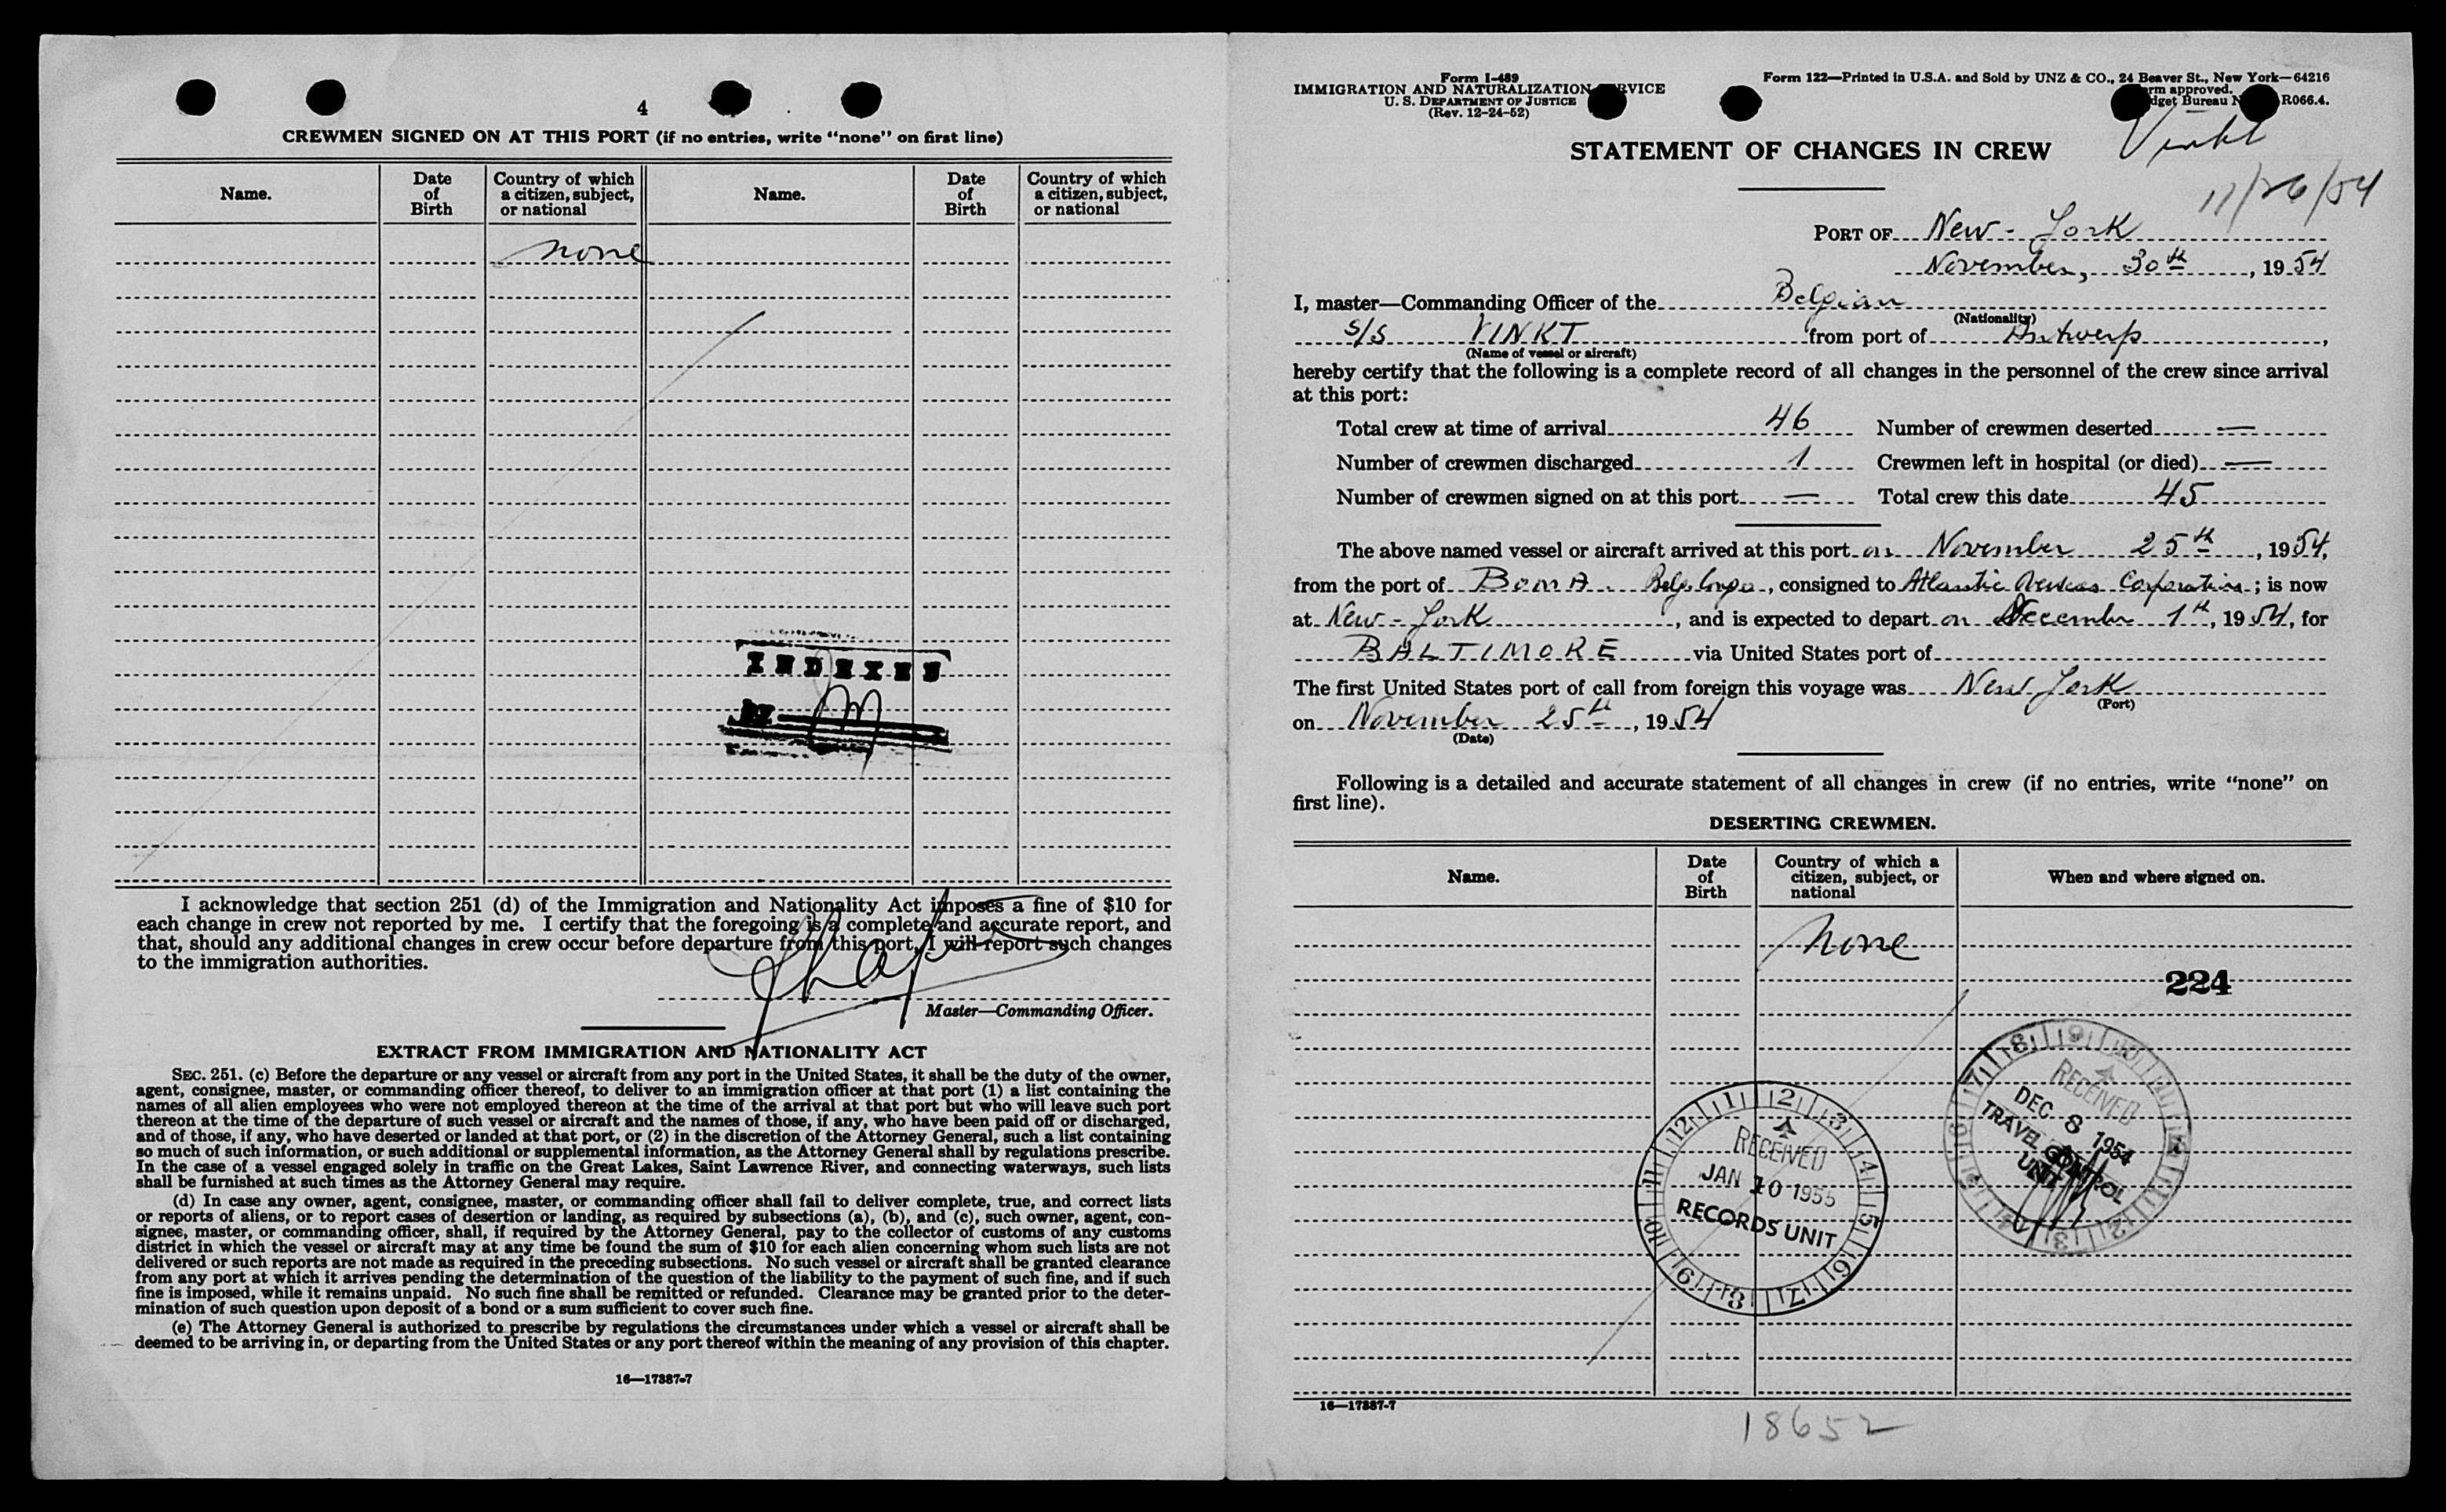 4
CREWMEN SIGNED ON AT THIS PORT (if no entries, write "none" on first line)
Name.
Date
of
Birth
Country of which
a citizen, subject,
or national
Name.
Date
of
Birth
Country of which
a citizen, subject,
or national
none
INDEXED
BY
I acknowledge that section 251 (d) of the Immigration and Nationality Act imposes a fine of $10 for
each change in crew not reported by me. I certify that the foregoing is a complete and accurate report, and
that, should any additional changes in crew occur before departure from this port, I will report such changes
to the immigration authorities.
Master—Commanding Officer.
EXTRACT FROM IMMIGRATION AND NATIONALITY ACT
SEC. 251. (c) Before the departure or any vessel or aircraft from any port in the United States, it shall be the duty of the owner,
agent, consignee, master, or commanding officer thereof, to deliver to an immigration officer at that port (1) a list containing the
names of all alien employees who were not employed thereon at the time of the arrival at that port but who will leave such port
thereon at the time of the departure of such vessel or aircraft and the names of those, if any, who have been paid off or discharged,
and of those, if any, who have deserted or landed at that port, or (2) in the discretion of the Attorney General, such a list containing
so much of such information, or such additional or supplemental information, as the Attorney General shall by regulations prescribe.
In the case of a vessel engaged solely in traffic on the Great Lakes, Saint Lawrence River, and connecting waterways, such lists
shall be furnished at such times as the Attorney General may require.
(d) In case any owner, agent, consignee, master, or commanding officer shall fail to deliver complete, true, and correct lists
or reports of aliens, or to report cases of desertion or landing, as required by subsections (a), (b), and (c), such owner, agent, con-
signee, master, or commanding officer, shall, if required by the Attorney General, pay to the collector of customs of any customs
district in which the vessel or aircraft may at any time be found the sum of $10 for each alien concerning whom such lists are not
delivered or such reports are not made as required in the preceding subsections. No such vessel or aircraft shall be granted clearance
from any port at which it arrives pending the determination of the question of the liability to the payment of such fine, and if such
fine is imposed, while it remains unpaid. No such fine shall be remitted or refunded. Clearance may be granted prior to the deter-
mination of such question upon deposit of a bond or a sum sufficient to cover such fine.
(e) The Attorney General is authorized to prescribe by regulations the circumstances under which a vessel or aircraft shall be
deemed to be arriving in, or departing from the United States or any port thereof within the meaning of any provision of this chapter.
16—17887-7
Form I-489
IMMIGRATION AND NATURALIZATION SERVICE
U. S. DEPARTMENT OF JUSTICE
(Rev. 12-24-52)
Form 122—Printed in U.S.A. and Sold by UNZ & CO., 24 Beaver St., New York—64216
rm approved.
dget Bureau N R066.4.
Vinkt
11/26/54
STATEMENT OF CHANGES IN CREW
PORT OF New-York
November, 30th, 1954
I, master—Commanding Officer of the Belgian
(Nationality)
S/S VINKT from port of Antwerp,
(Name of vessel or aircraft)
hereby certify that the following is a complete record of all changes in the personnel of the crew since arrival
at this port:
Total crew at time of arrival 46 Number of crewmen deserted —
Number of crewmen discharged 1 Crewmen left in hospital (or died) —
Number of crewmen signed on at this port — Total crew this date 45
The above named vessel or aircraft arrived at this port on November 25th, 1954,
from the port of BOMA. Belg. Congo, consigned to Atlantic Overseas Corporation; is now
at New-York, and is expected to depart on December 1th, 1954, for
BALTIMORE via United States port of
The first United States port of call from foreign this voyage was New York
(Port)
on November 25th, 1954
(Date)
Following is a detailed and accurate statement of all changes in crew (if no entries, write "none" on
first line).
DESERTING CREWMEN.
Name.
Date
of
Birth
Country of which a
citizen, subject, or
national
When and where signed on.
None
224
RECEIVED
DEC 8 1954
TRAVEL CONTROL
UNIT
RECEIVED
JAN 10 1955
RECORDS UNIT
16—17887-7
18652